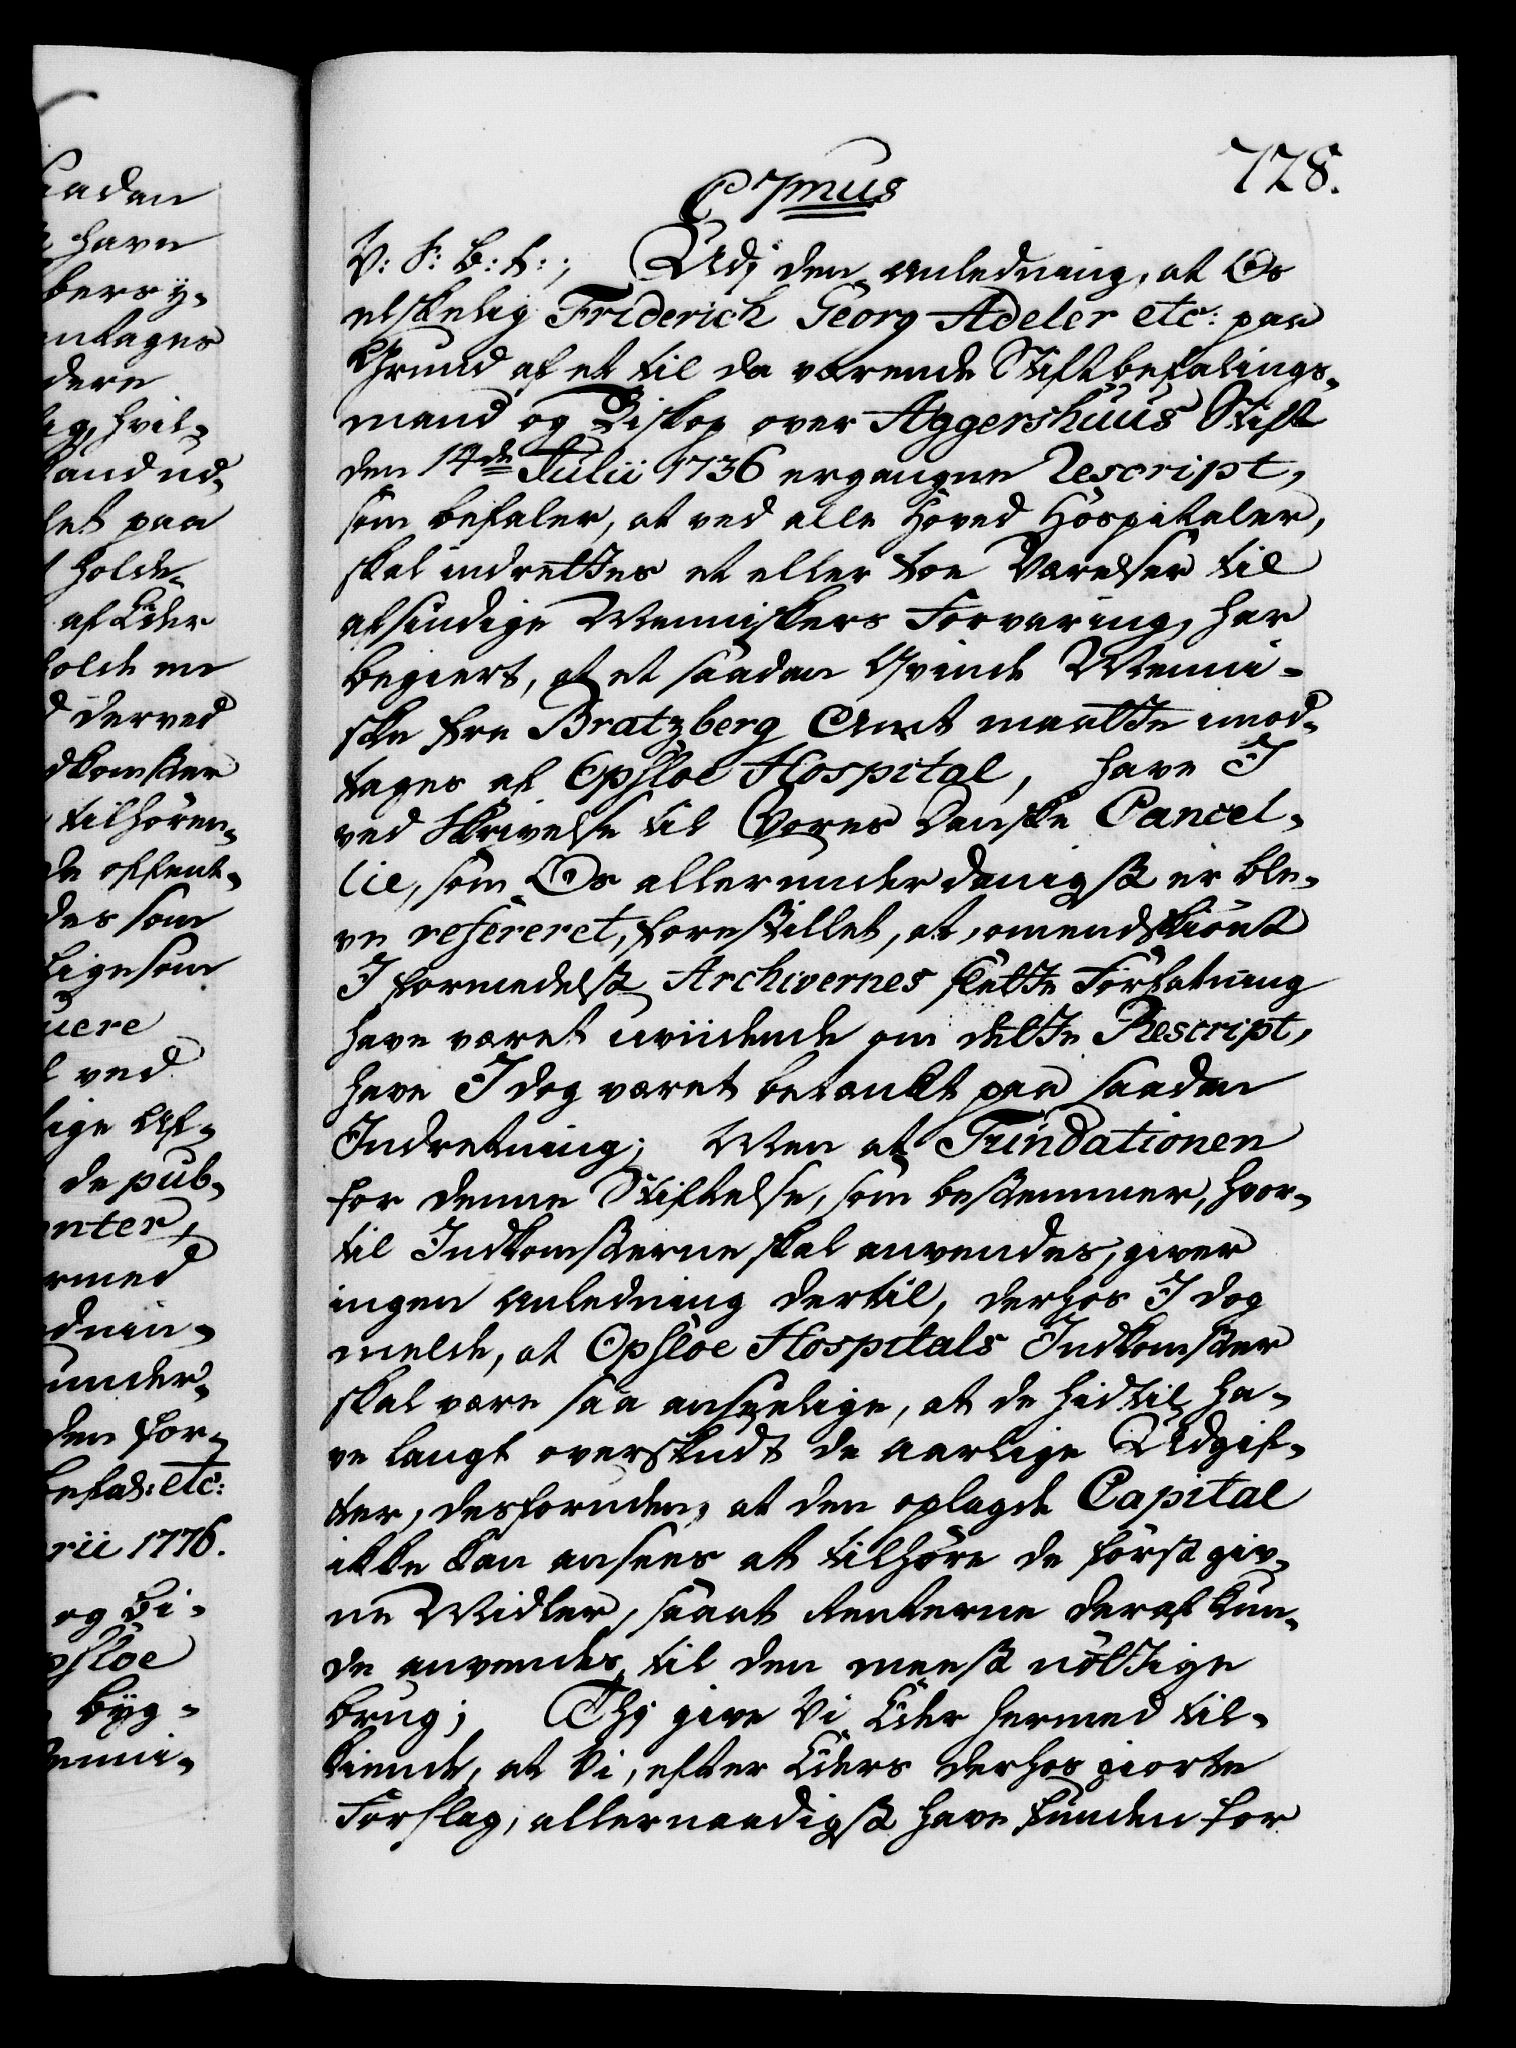 aadan
havn
bersy¬
ntages
dere
ig, hvil¬
and ud¬
et paa
holde¬
af Eder
olde en
derved
dkomster
tilhören¬
de offent¬
des som
ligesom
uere
ved
lige Af¬
de pub¬
nter,
rmed
dnin¬
under¬
den for¬
befal: etc:
rii 1776.
og Bi¬
psloe
byg¬
enni¬
728.
C 7mus
V: S: B: T:, Udj den Anledning, at Os
elskelig Friderich Georg Adeler etc: paa
Grund af et til da værende Stiftbefalings¬
mand og Biskop over Aggershuus Stift
den 14de Julii 1736 ergangne Rescript,
som befaler, at ved alle Hoved Hospitaler,
skal indrettes et eller toe Værelser til
afsindige Menniskers Forvaring, har
begiert, at et saadan Qvinde Menni¬
ske fra Bratzberg Amt maatte imod¬
tages af Opsloe Hospital, have I
ved Skrivelse til Vores Danske Cancel¬
lie, som Os allerunderdanigst er ble¬
ve refereret, forestillet, at, omendskiönt
I formedelst Archivernes slette Forfatning
have været uviidende om dette Rescript,
have I dog været betænkt paa saadan
Indretning; Men at Fundationen
for denne Stiftelse, som bestemmer, hvor¬
til Indkomsterne skal anvendes, giver
ingen Anledning dertil, derhos I dog
melde, at Opsloe Hospitals Indkomster
skal være saa anseelige, at de hidtil ha¬
ve langt overskudt de aarlige Udgif¬
ter, desforuden, at den oplagde Capital
ikke kan ansees at tilhöre de först giv¬
ne Midler, saa at Renterne deraf kun¬
de anvendes til den meest nöttige
brug; Thj give Vi Eder hermed til¬
kiende, at Vi, efter Eders derhos giorte
Forslag, allernaadigst have funden for